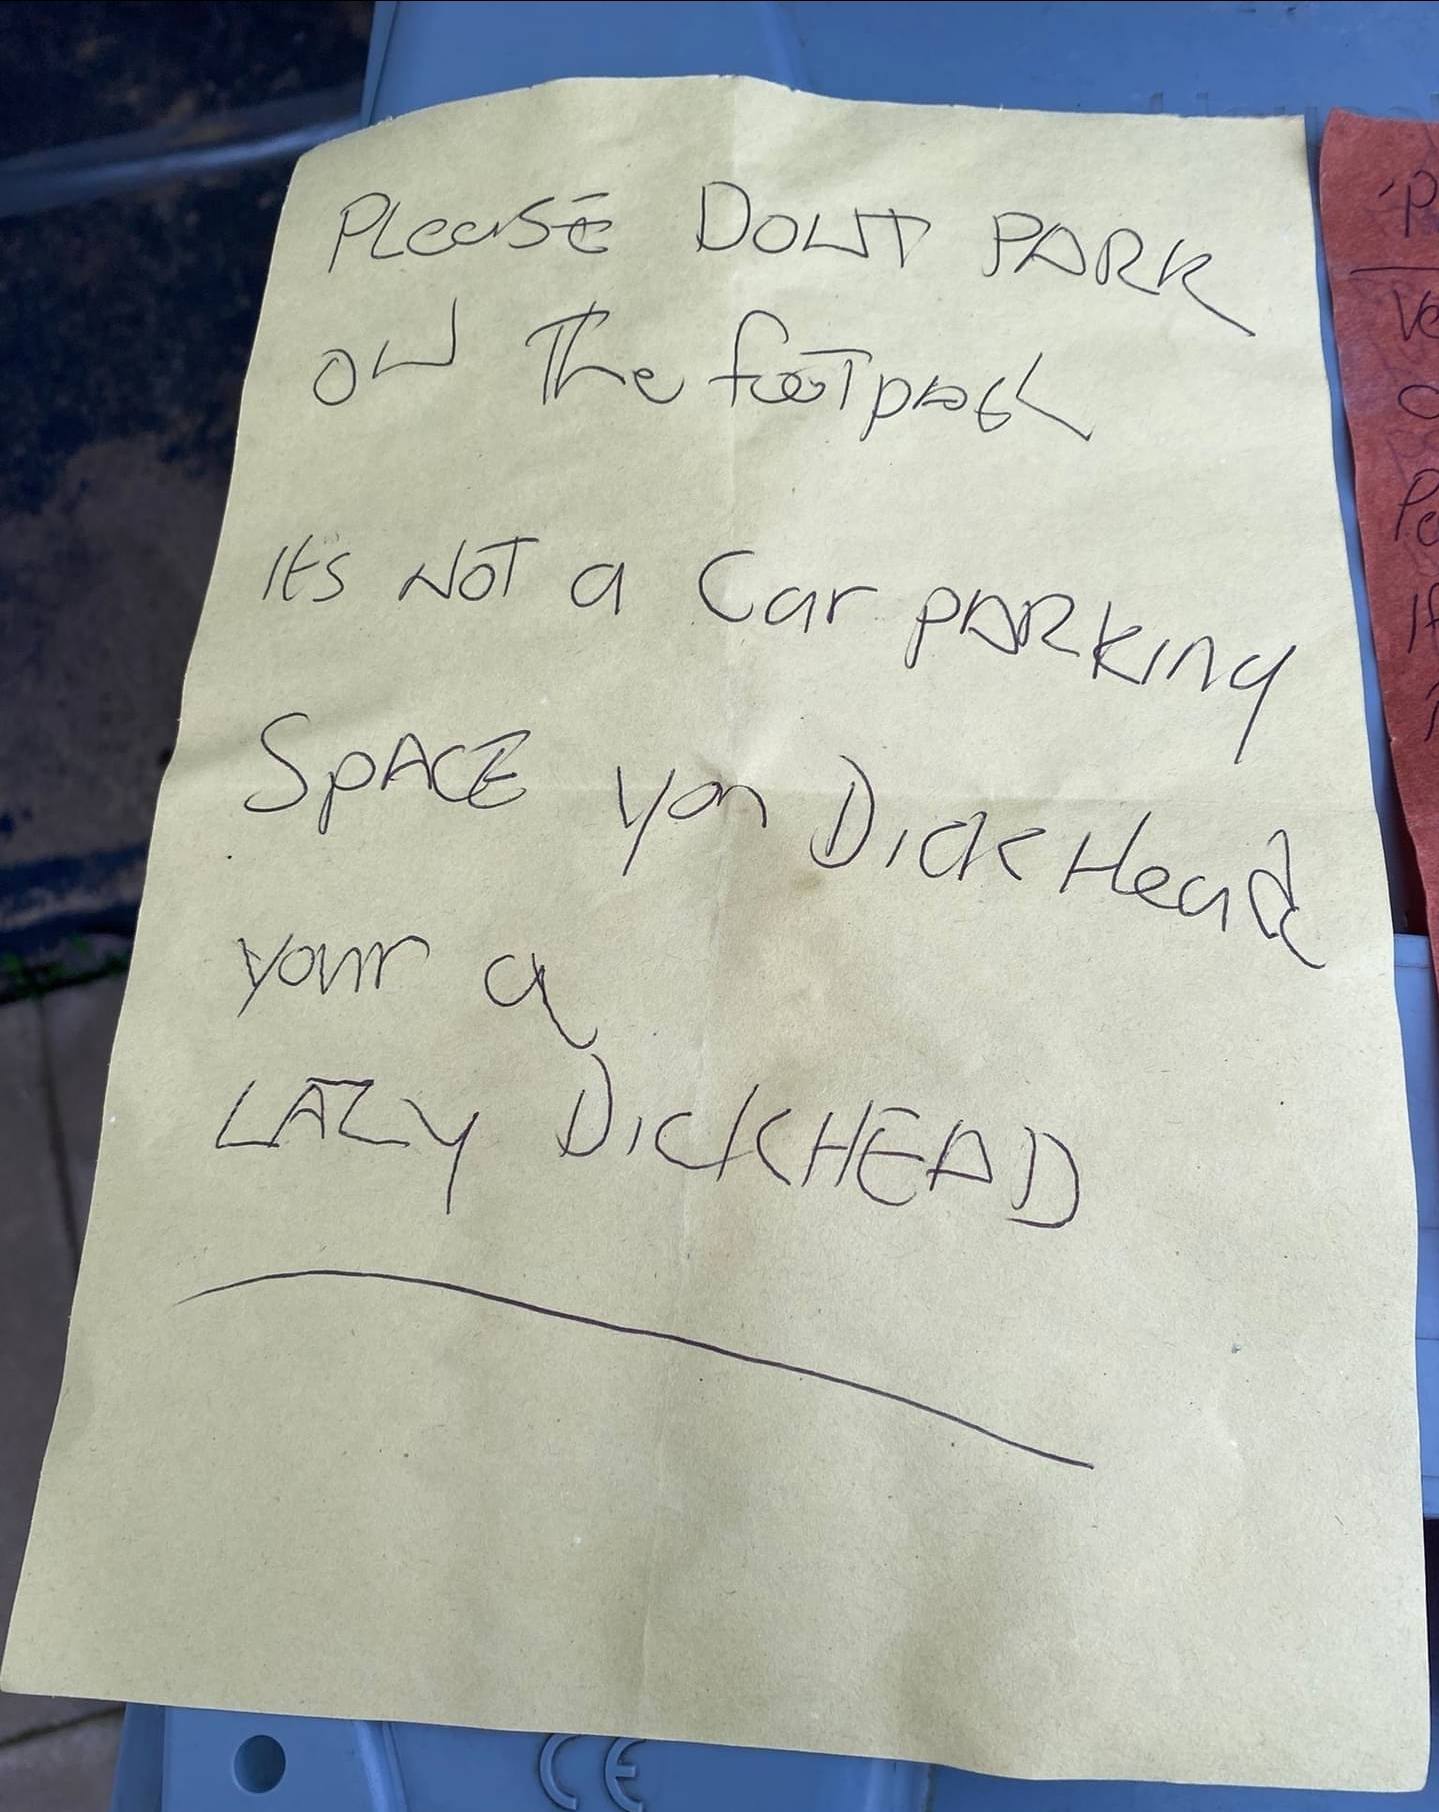 PLeaSE DONT PARK
ON The footpath
Its NOT a Car PARKing
SpACE you DICKHead
your a
LAZY DickHEAD
P
Ve
O
Pe
If
CE